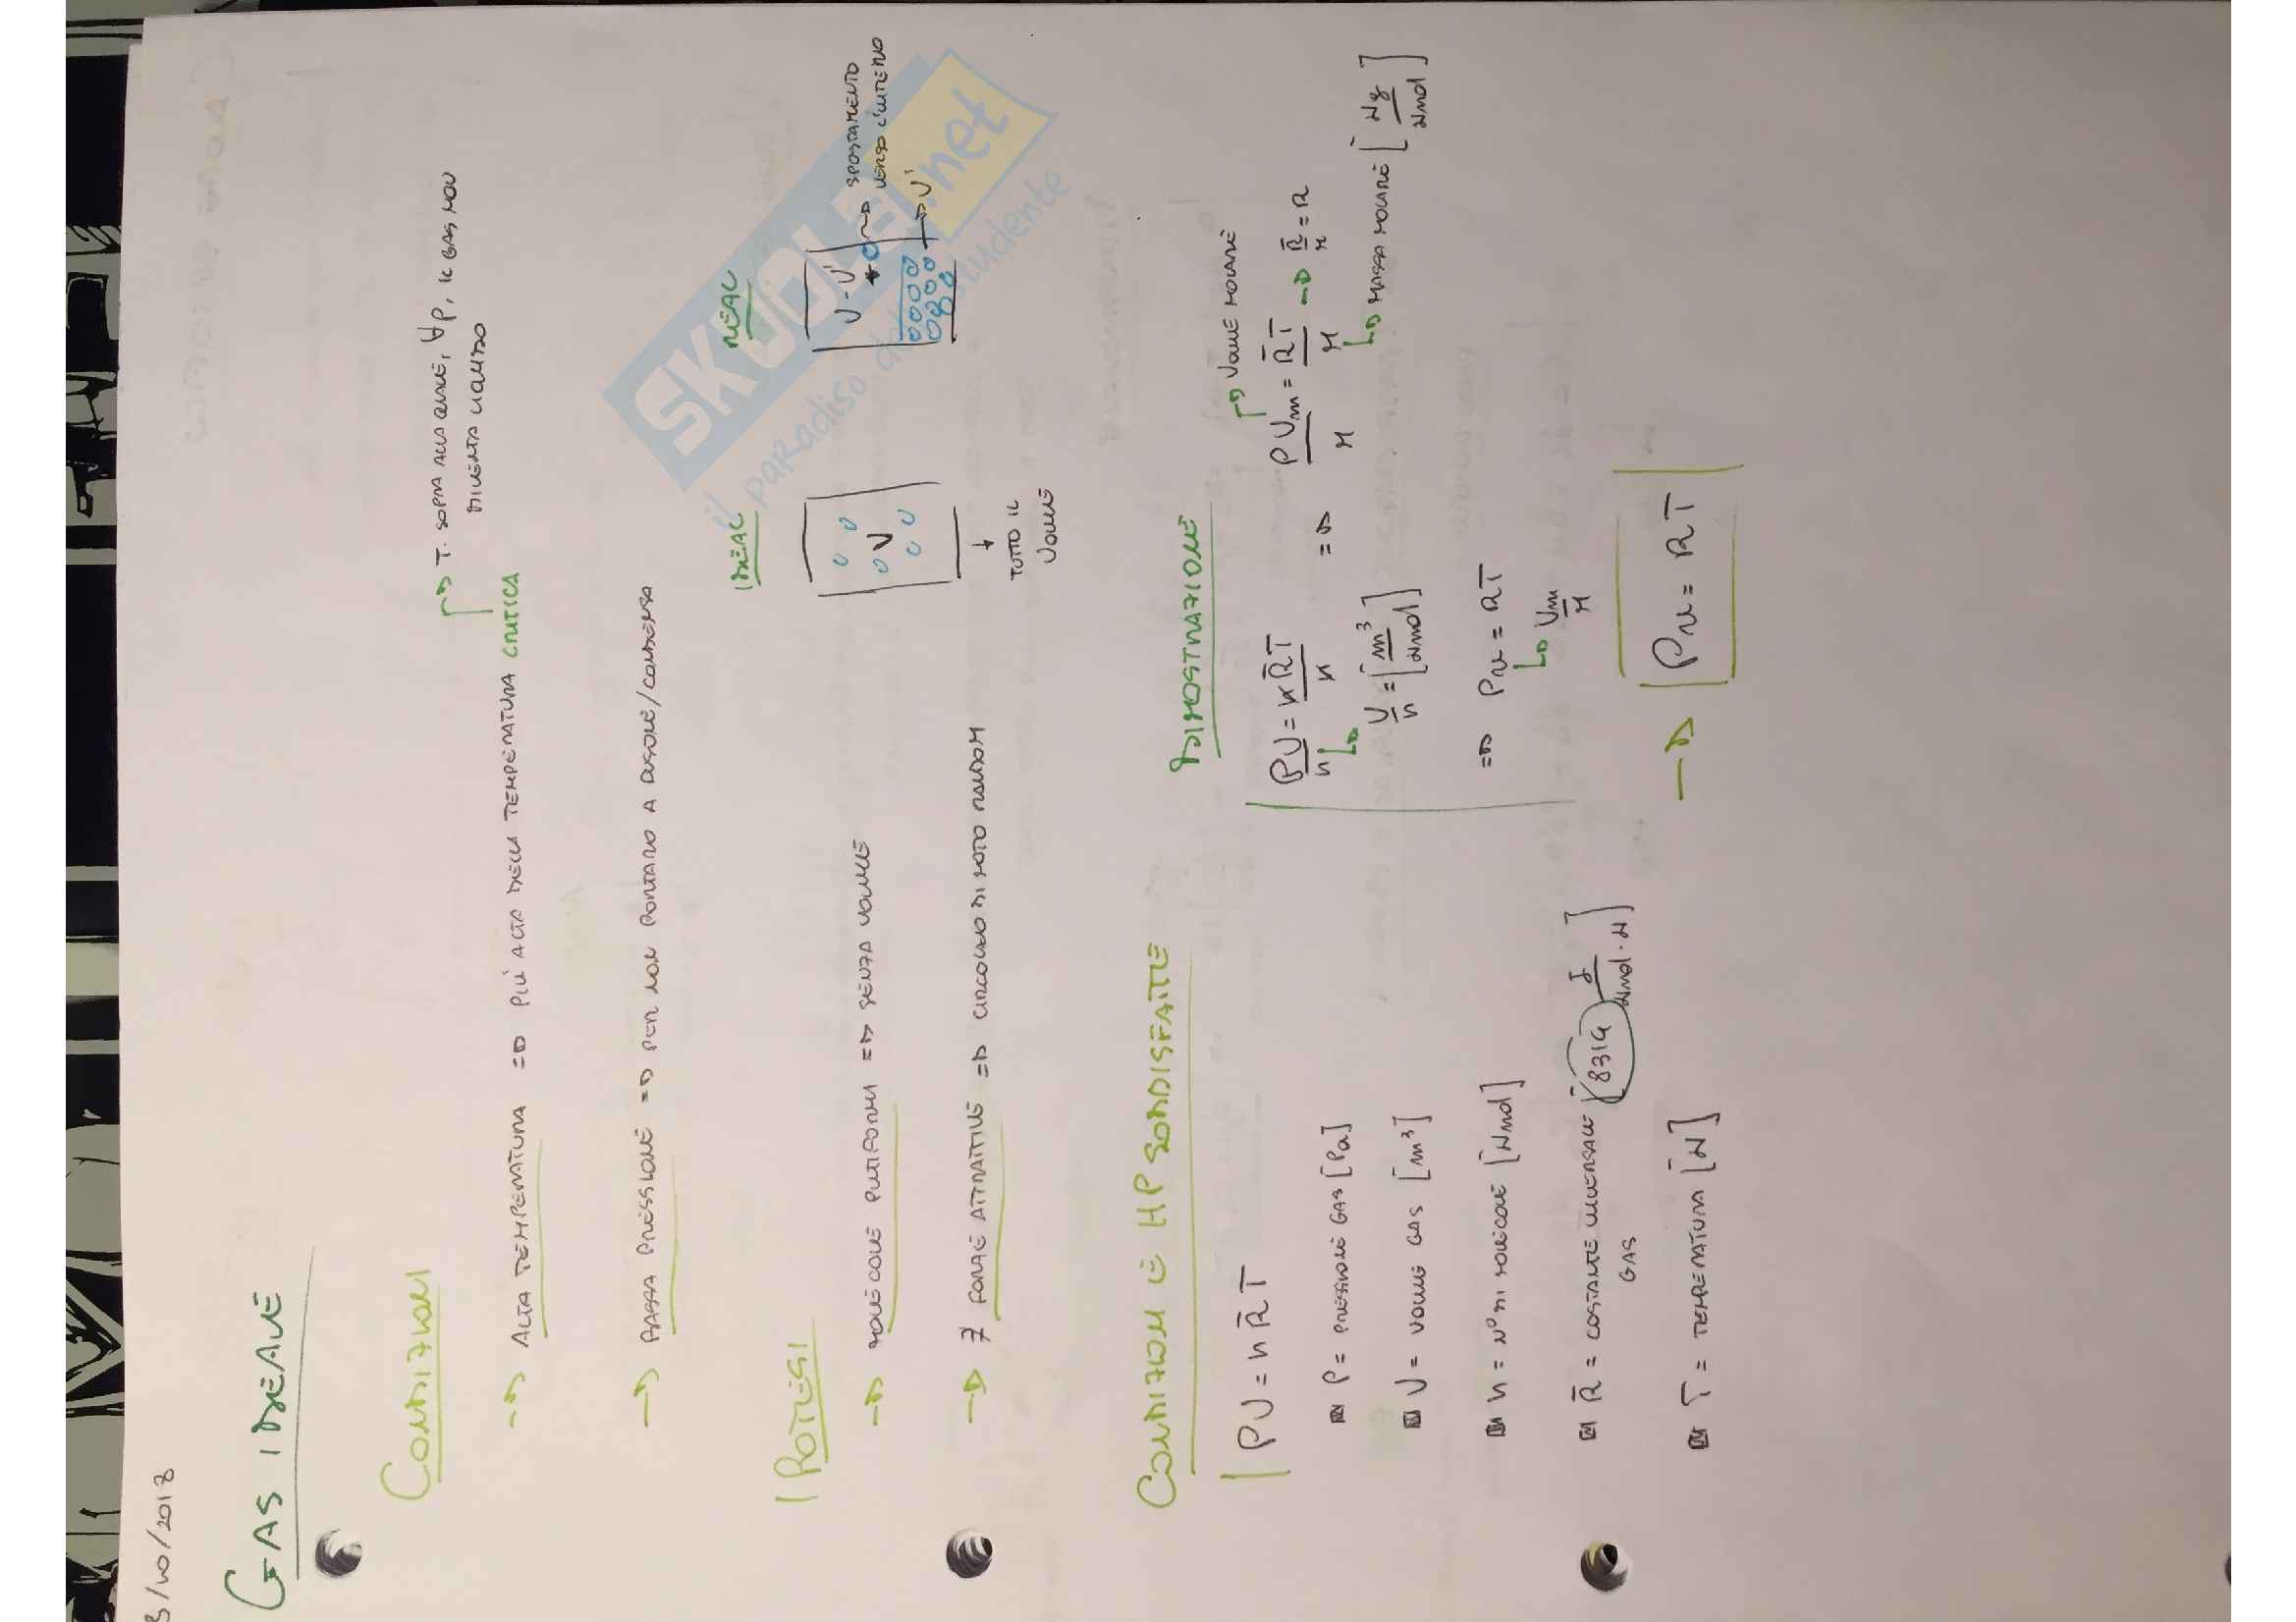 8/10/2018
GAS IDEALE
CONDIZIONI
→ ALTA TEMPERATURA ⇒ PIÙ ALTA DELLA TEMPERATURA CRITICA
T. SOPRA ALLA QUALE, ∀P, IL GAS NON
DIVENTA LIQUIDO
→ BASSA PRESSIONE ⇒ PER NON PORTARLO A LIQUIDO/CONDENSA
IPOTESI
→ MOLECOLE PUNTIFORMI ⇒ SENZA VOLUME
→ ∄ FORZE ATTRATTIVE ⇒ CIASCUNO DI MOTO RANDOM
IDEAL
V
TUTTO IL
VOLUME
REAL
V-V'
SPOSTAMENTO
VERSO L'INTERNO
V'
CONDIZIONI E HP SODDISFATTE
PV = nR̄T
P = PRESSIONE GAS [Pa]
V = VOLUME GAS [m³]
n = N° DI MOLECOLE [Kmol]
R̄ = COSTANTE UNIVERSALE [8314 J/Kmol·K]
GAS
T = TEMPERATURA [K]
DIMOSTRAZIONE
PV/n = nR̄T/n ⇒ PVm/M = R̄T/M → R̄/M = R
V/n = [m³/Kmol]
VOLUME MOLARE
MASSA MOLARE [Kg/Kmol]
⇒ Pv = RT
Vm/M
→ Pv = RT
SKUOLA.net
il paradiso dello studente